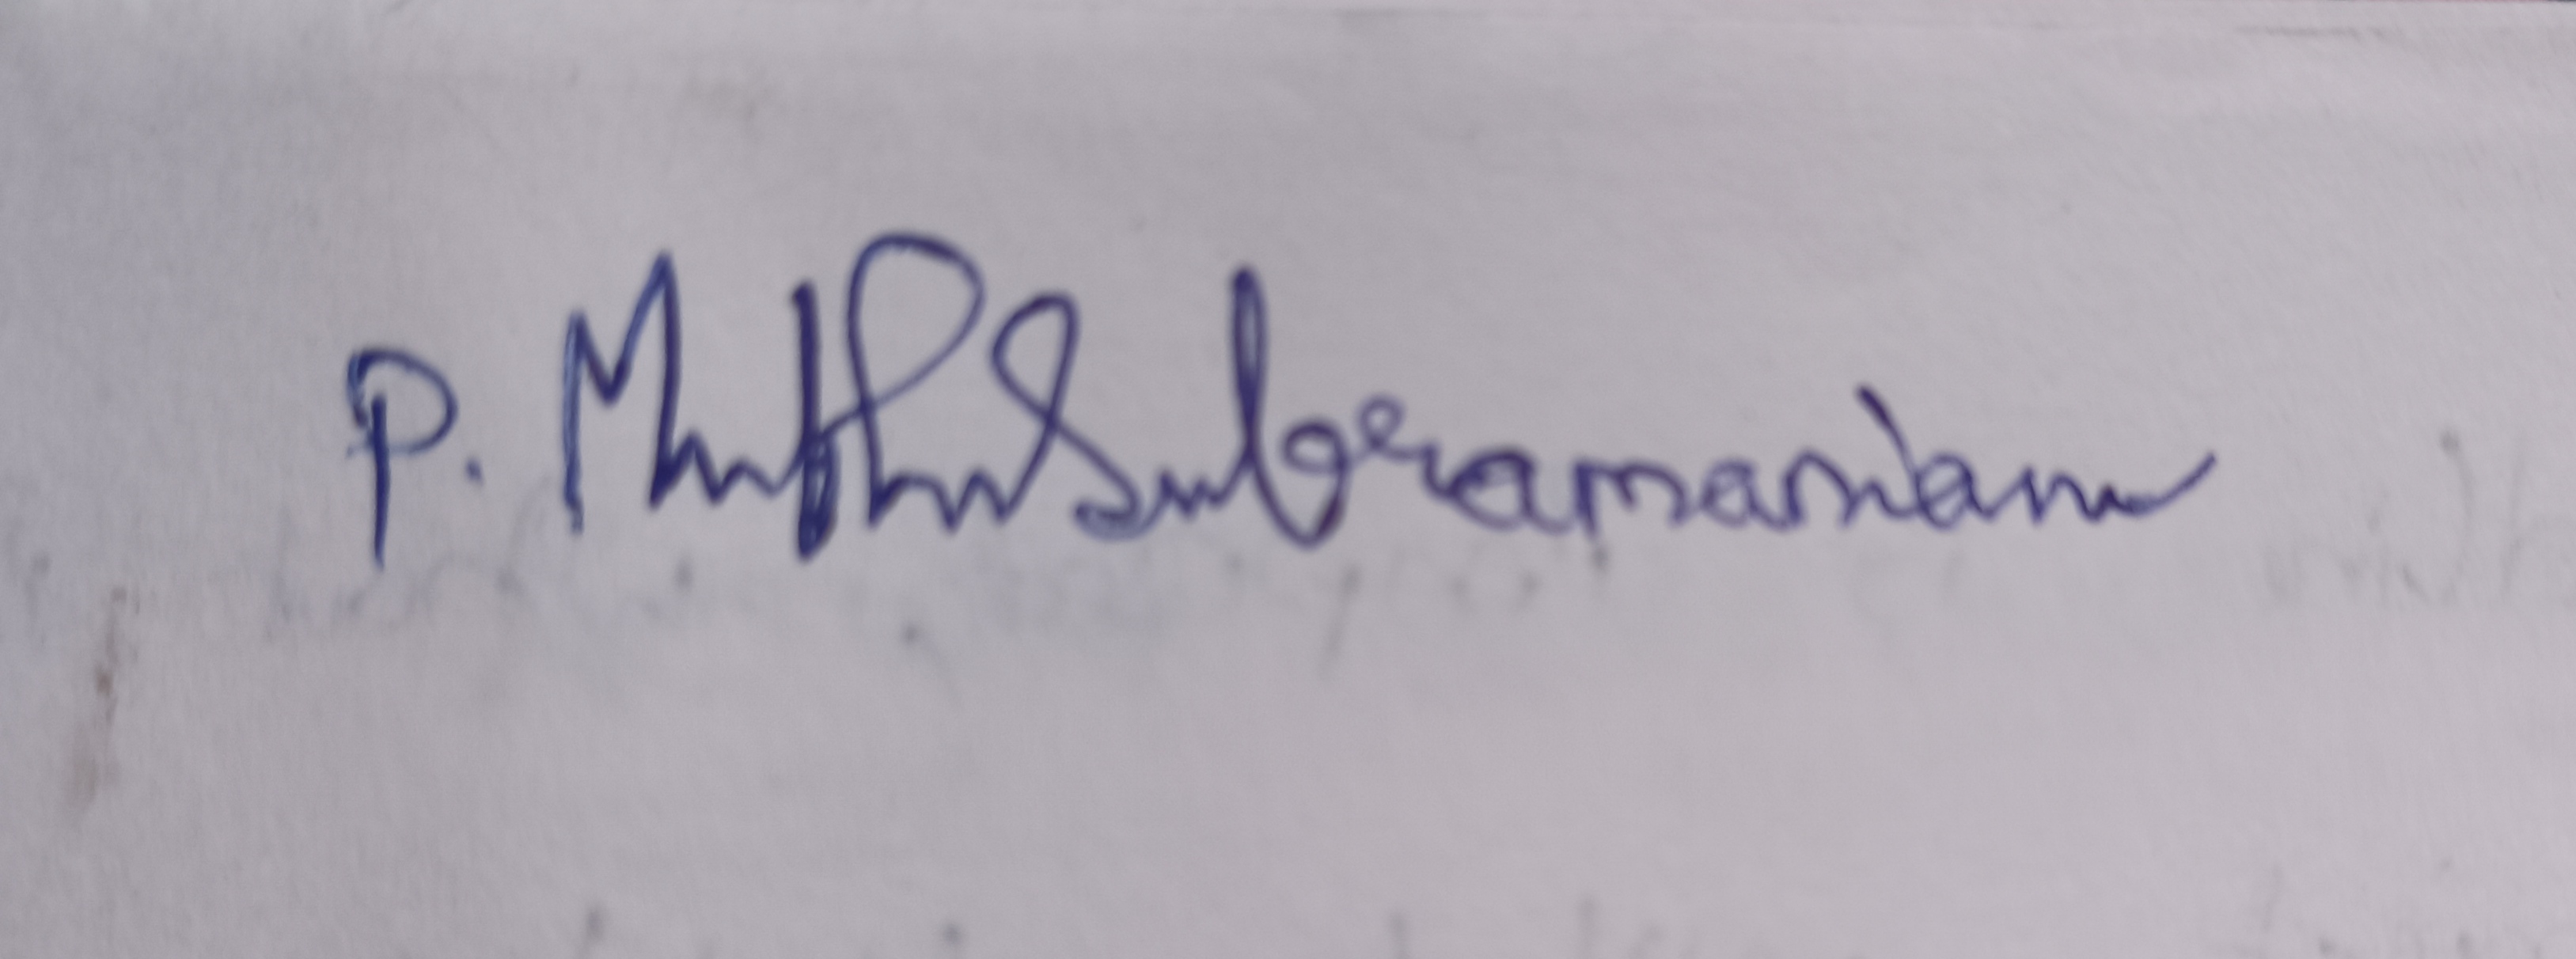 P. MuthuSubramaniam